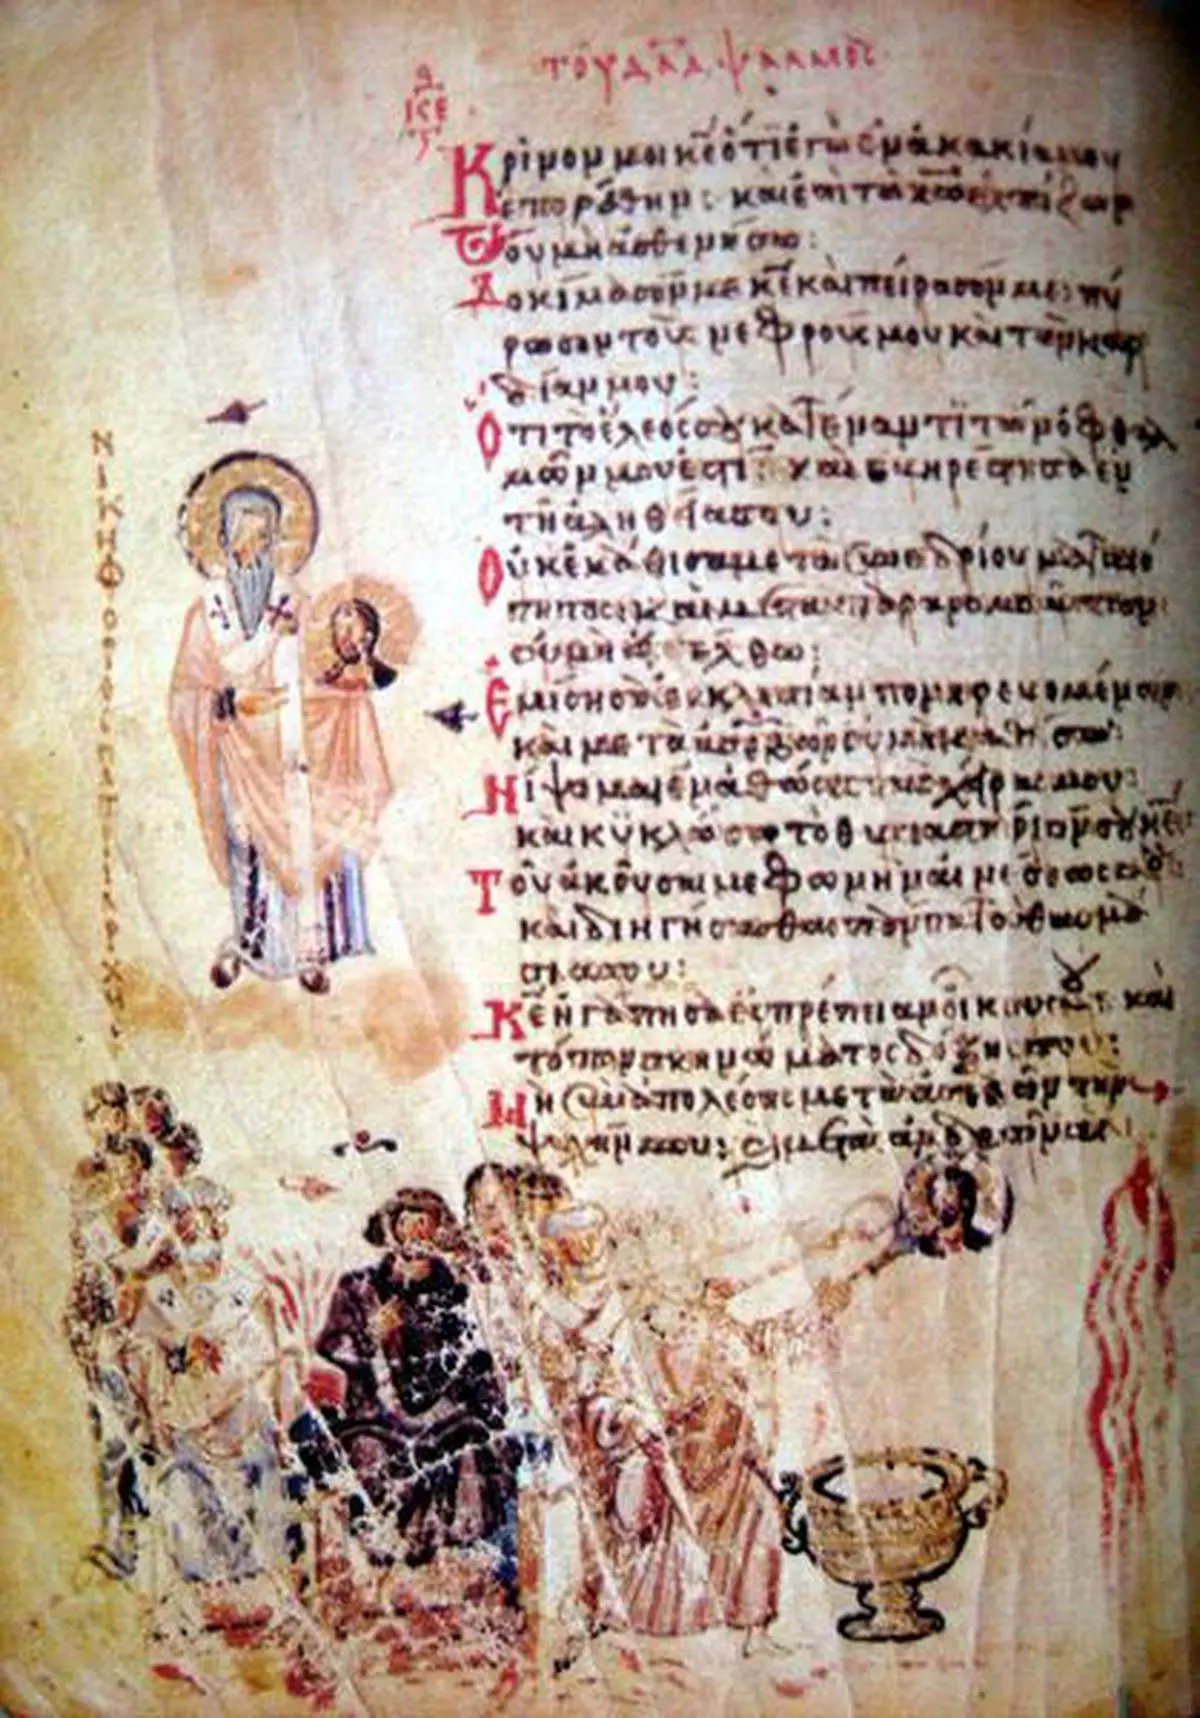 τοῦ δαδ ψαλμός
Κρῖνόν μοι κε ὅτι ἐγὼ ἐν ἀκακία μου
ἐπορεύθην: καὶ ἐπὶ τῶ κω ἐλπίζων
οὐ μὴ ἀσθενήσω:
Δοκίμασόν με κε καὶ πείρασόν με: πύ
ρωσον τοὺς νεφρούς μου καὶ τὴν καρ
δίαν μου:
Ὅτι τὸ ἔλεός σου κατέναντι τῶν ὀφθαλ
μῶν μου ἐστί: καὶ εὐηρέστησα ἐν
τῆ ἀληθεία σου:
Οὐκ ἐκάθισα μετὰ συνεδρίου ματαιό
τητος: καὶ μετὰ παρανομούντων
οὐ μὴ εἰσέλθω:
Ἐμίσησα ἐκκλησίαν πονηρευομένων
καὶ μετὰ ἀσεβῶν οὐ μὴ καθίσω:
Νίψομαι ἐν ἀθώοις τὰς χεῖράς μου:
καὶ κυκλώσω τὸ θυσιαστήριόν σου κε
Τοῦ ἀκοῦσαί με φωνὴν αἰνέσεώς σου
καὶ διηγήσασθαι πάντα τὰ θαυμά
σιά σου:
Κε ἠγάπησα εὐπρέπειαν οἴκου σου καὶ
τόπον σκηνώματος δόξης σου:
Μὴ συναπολέσης μετὰ ἀσεβῶν τὴν
ψυχήν μου:
ΝΙΚΗΦΟΡΟΣ